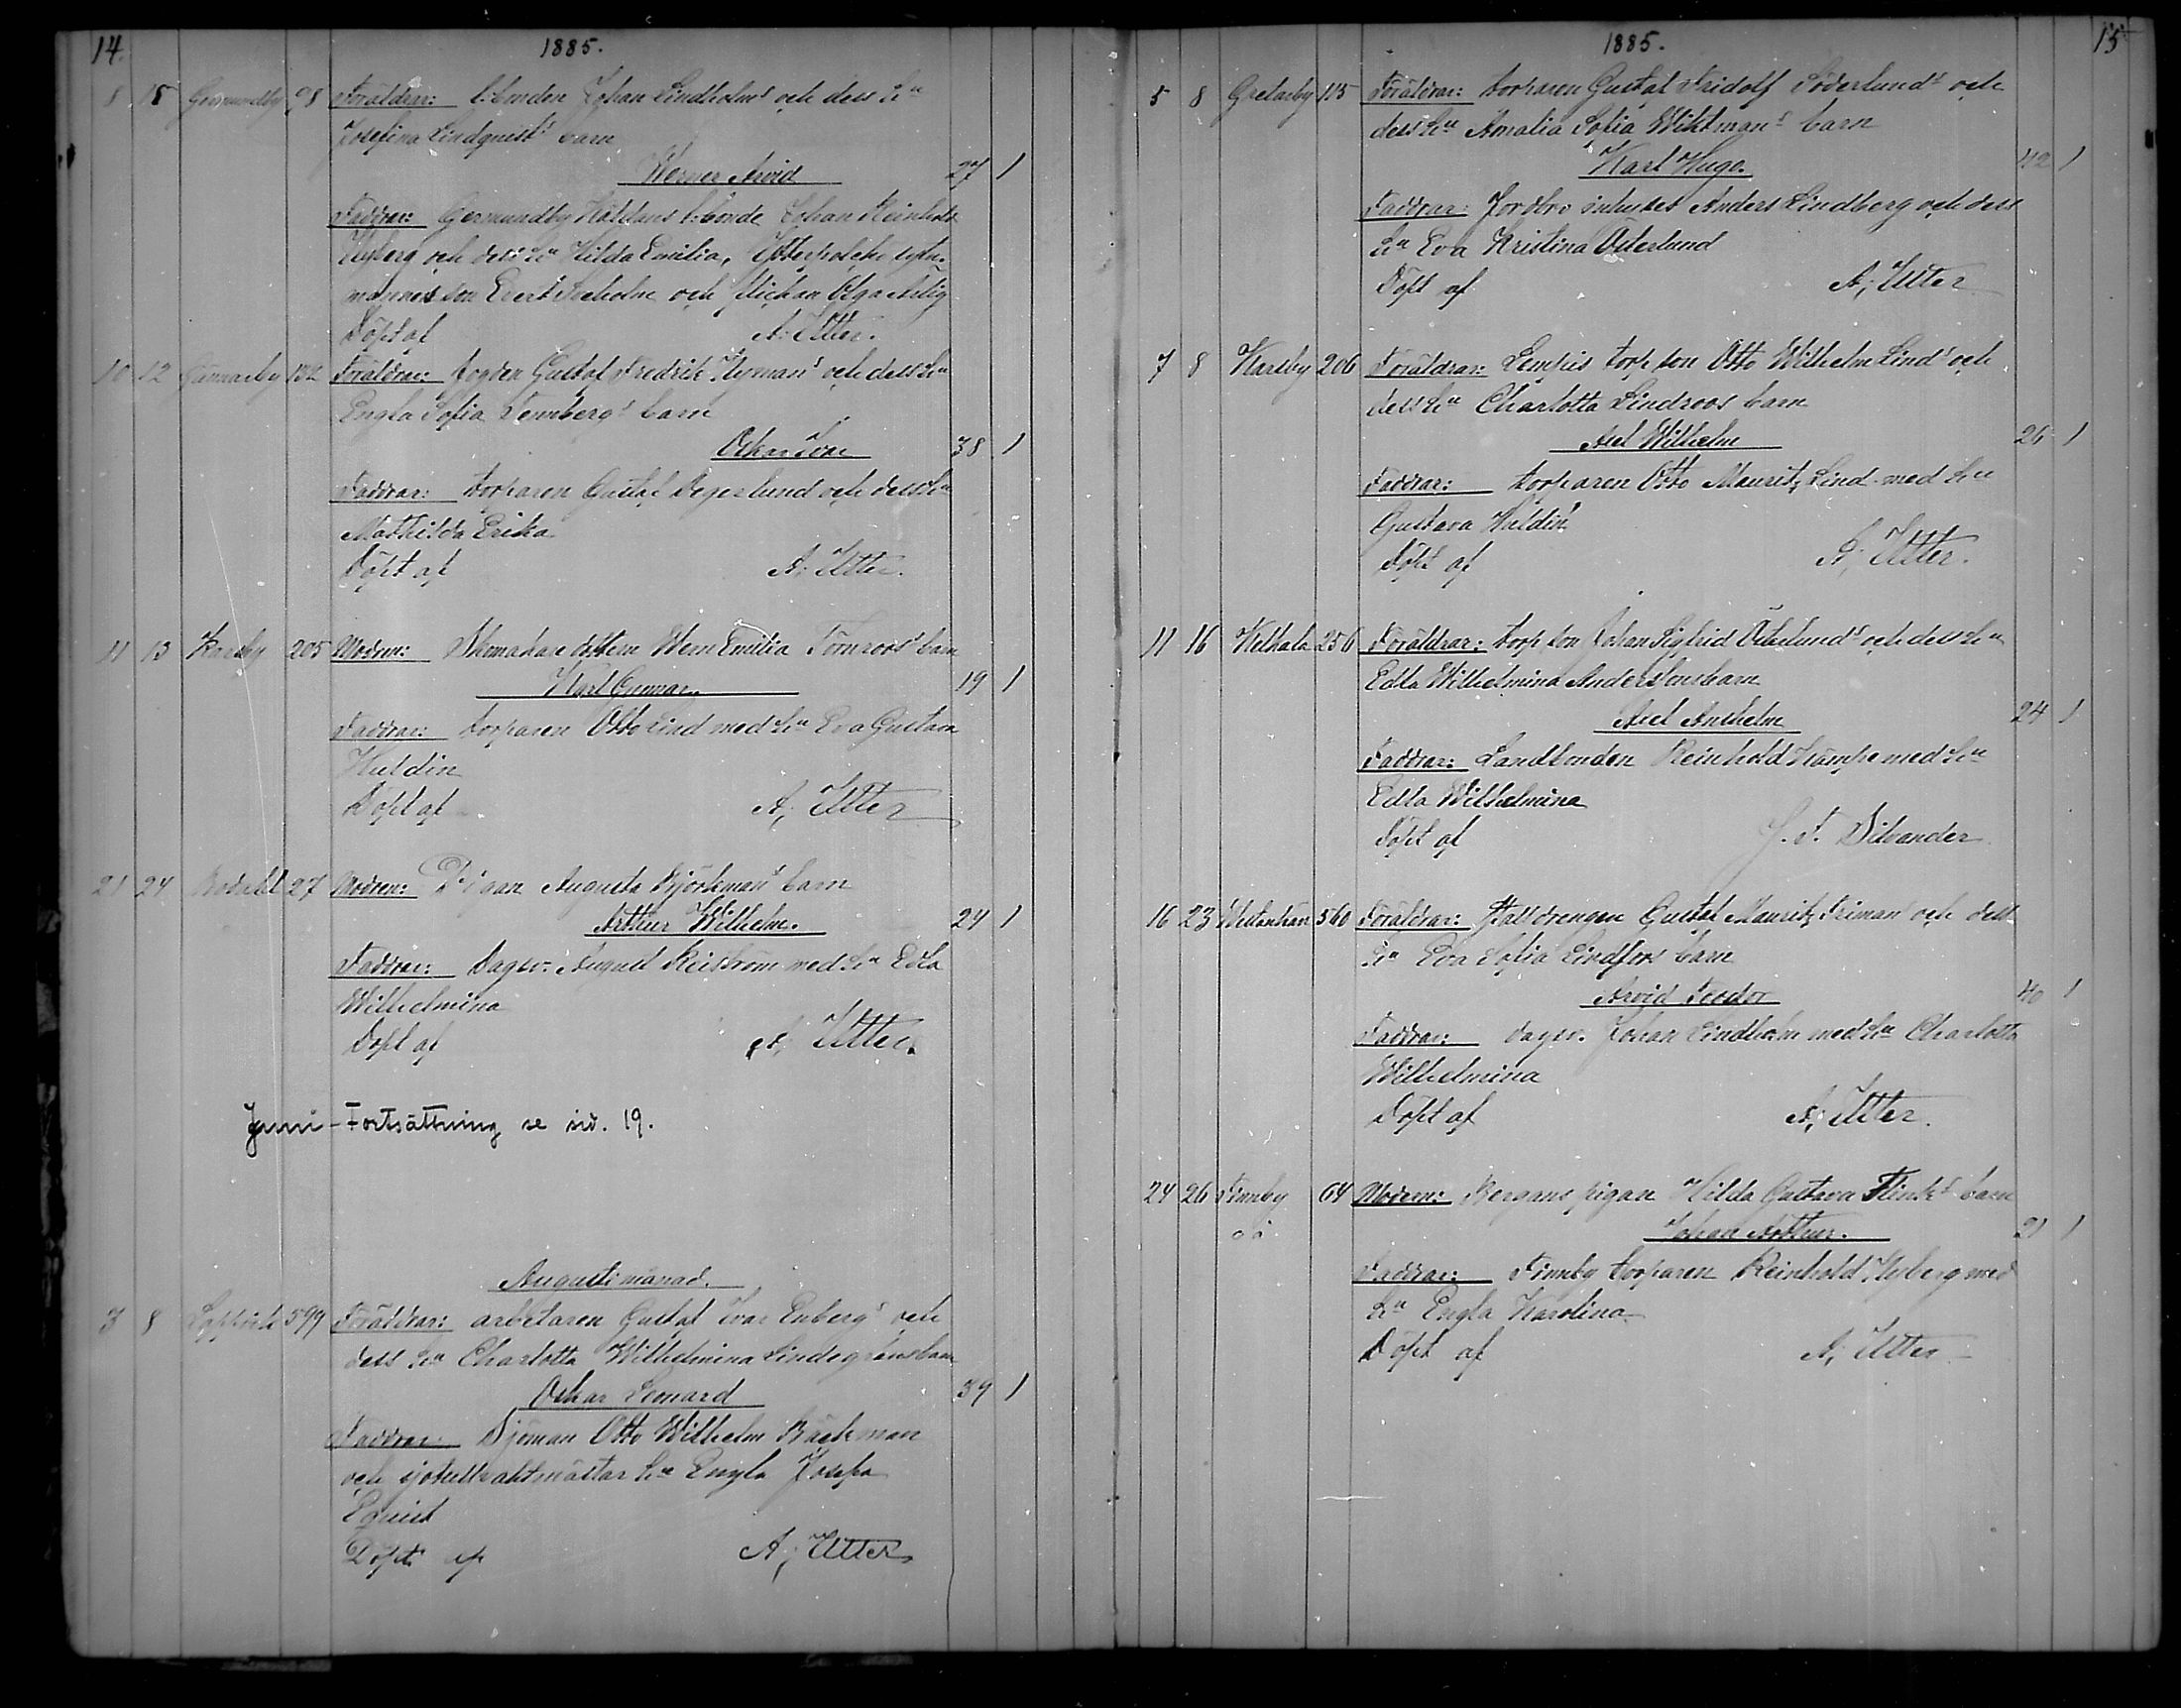 14.
1885.
8 15 Germundby 98 Föräldrar: l:bonden Johan Lindholms och dess h:u
Josefina Lindquists barn
Werner Arvid 27 1
Faddrar: Germundby l:bonde Johan Reinhold
Nyberg och dess h:u Hilda Emilia,
son Evert och flickan Olga
Döpt af A. Utter.
10 12 Gunnarby 132 Föräldrar: Fogden Gustaf Fredrik Nymans och dess h:u
Engla Sofia Tennbergs barn
Oskar 38 1
Faddrar: torparen Gustaf Degerlund och dess h:u
Mathilda Erika
Döpt af A. Utter.
11 13 Karsby 205 Modren: Skomakare dottern Emilia Törnroos' barn
Karl Gunnar. 19 1
Faddrar: torparen Otto Lind med h:u Eva Gustava
Huldin
Döpt af A. Utter
21 24 27 Modren: Pigan Augusta Björkmans barn
Arthur Wilhelm. 24 1
Faddrar: Dagsv. August med h:u Edla
Wilhelmina
Döpt af A. Utter.
Juni - Fortsättning se sid. 19.
Augusti månad.
3 8 599 Föräldrar: arbetaren Gustaf Ivar Enbergs och
dess h:u Charlotta Wilhelmina Lindegrens barn
Oskar Leonard 39 1
Faddrar: Sjöman Otto Wilhelm Bäckman
och h:u Engla Josefa
Döpt af A. Utter
1885.
15
5 8 Grelsby 115 Föräldrar: torparen Gustaf Fridolf Söderlunds och
dess h:u Amalia Sofia Wiktmans barn
Karl Hugo. 42 1
Faddrar: Jordbro inhyses Anders Lindberg och dess
h:u Eva Kristina Österlund
Döpt af A. Utter
7 8 Karsby 206 Föräldrar: Lempis torp son Otto Wilhelm Linds och
dess h:u Charlotta Lindroos barn
Axel Wilhelm 26 1
Faddrar: torparen Otto Mauritz Lind med h:u
Gustava Huldin
Döpt af A. Utter.
11 16 256 Föräldrar: torp son Johan Sigfrid och dess h:u
Edla Wilhelmina Anderssons barn
Axel Anshelm 24 1
Faddrar: Landbonden Reinhold Kämpe med h:u
Edla Wilhelmina
Döpt af Silvander
16 23 560 Föräldrar: Stalldrengen Gustaf Mauritz Frimans och dess
h:u Eva Sofia Lindfors barn
Arvid Teodor 40 1
Faddrar: dagsv. Johan Lindholm med h:u Charlotta
Wilhelmina
Döpt af A. Utter.
24 26 Finnby 64 Modern: Bergans pigan Hilda Gustava Flinks barn
oä.
Johan Arthur. 21 1
Faddrar: Finnby torparen Reinhold Nyberg med
h:u Engla Karolina
Döpt af A. Utter